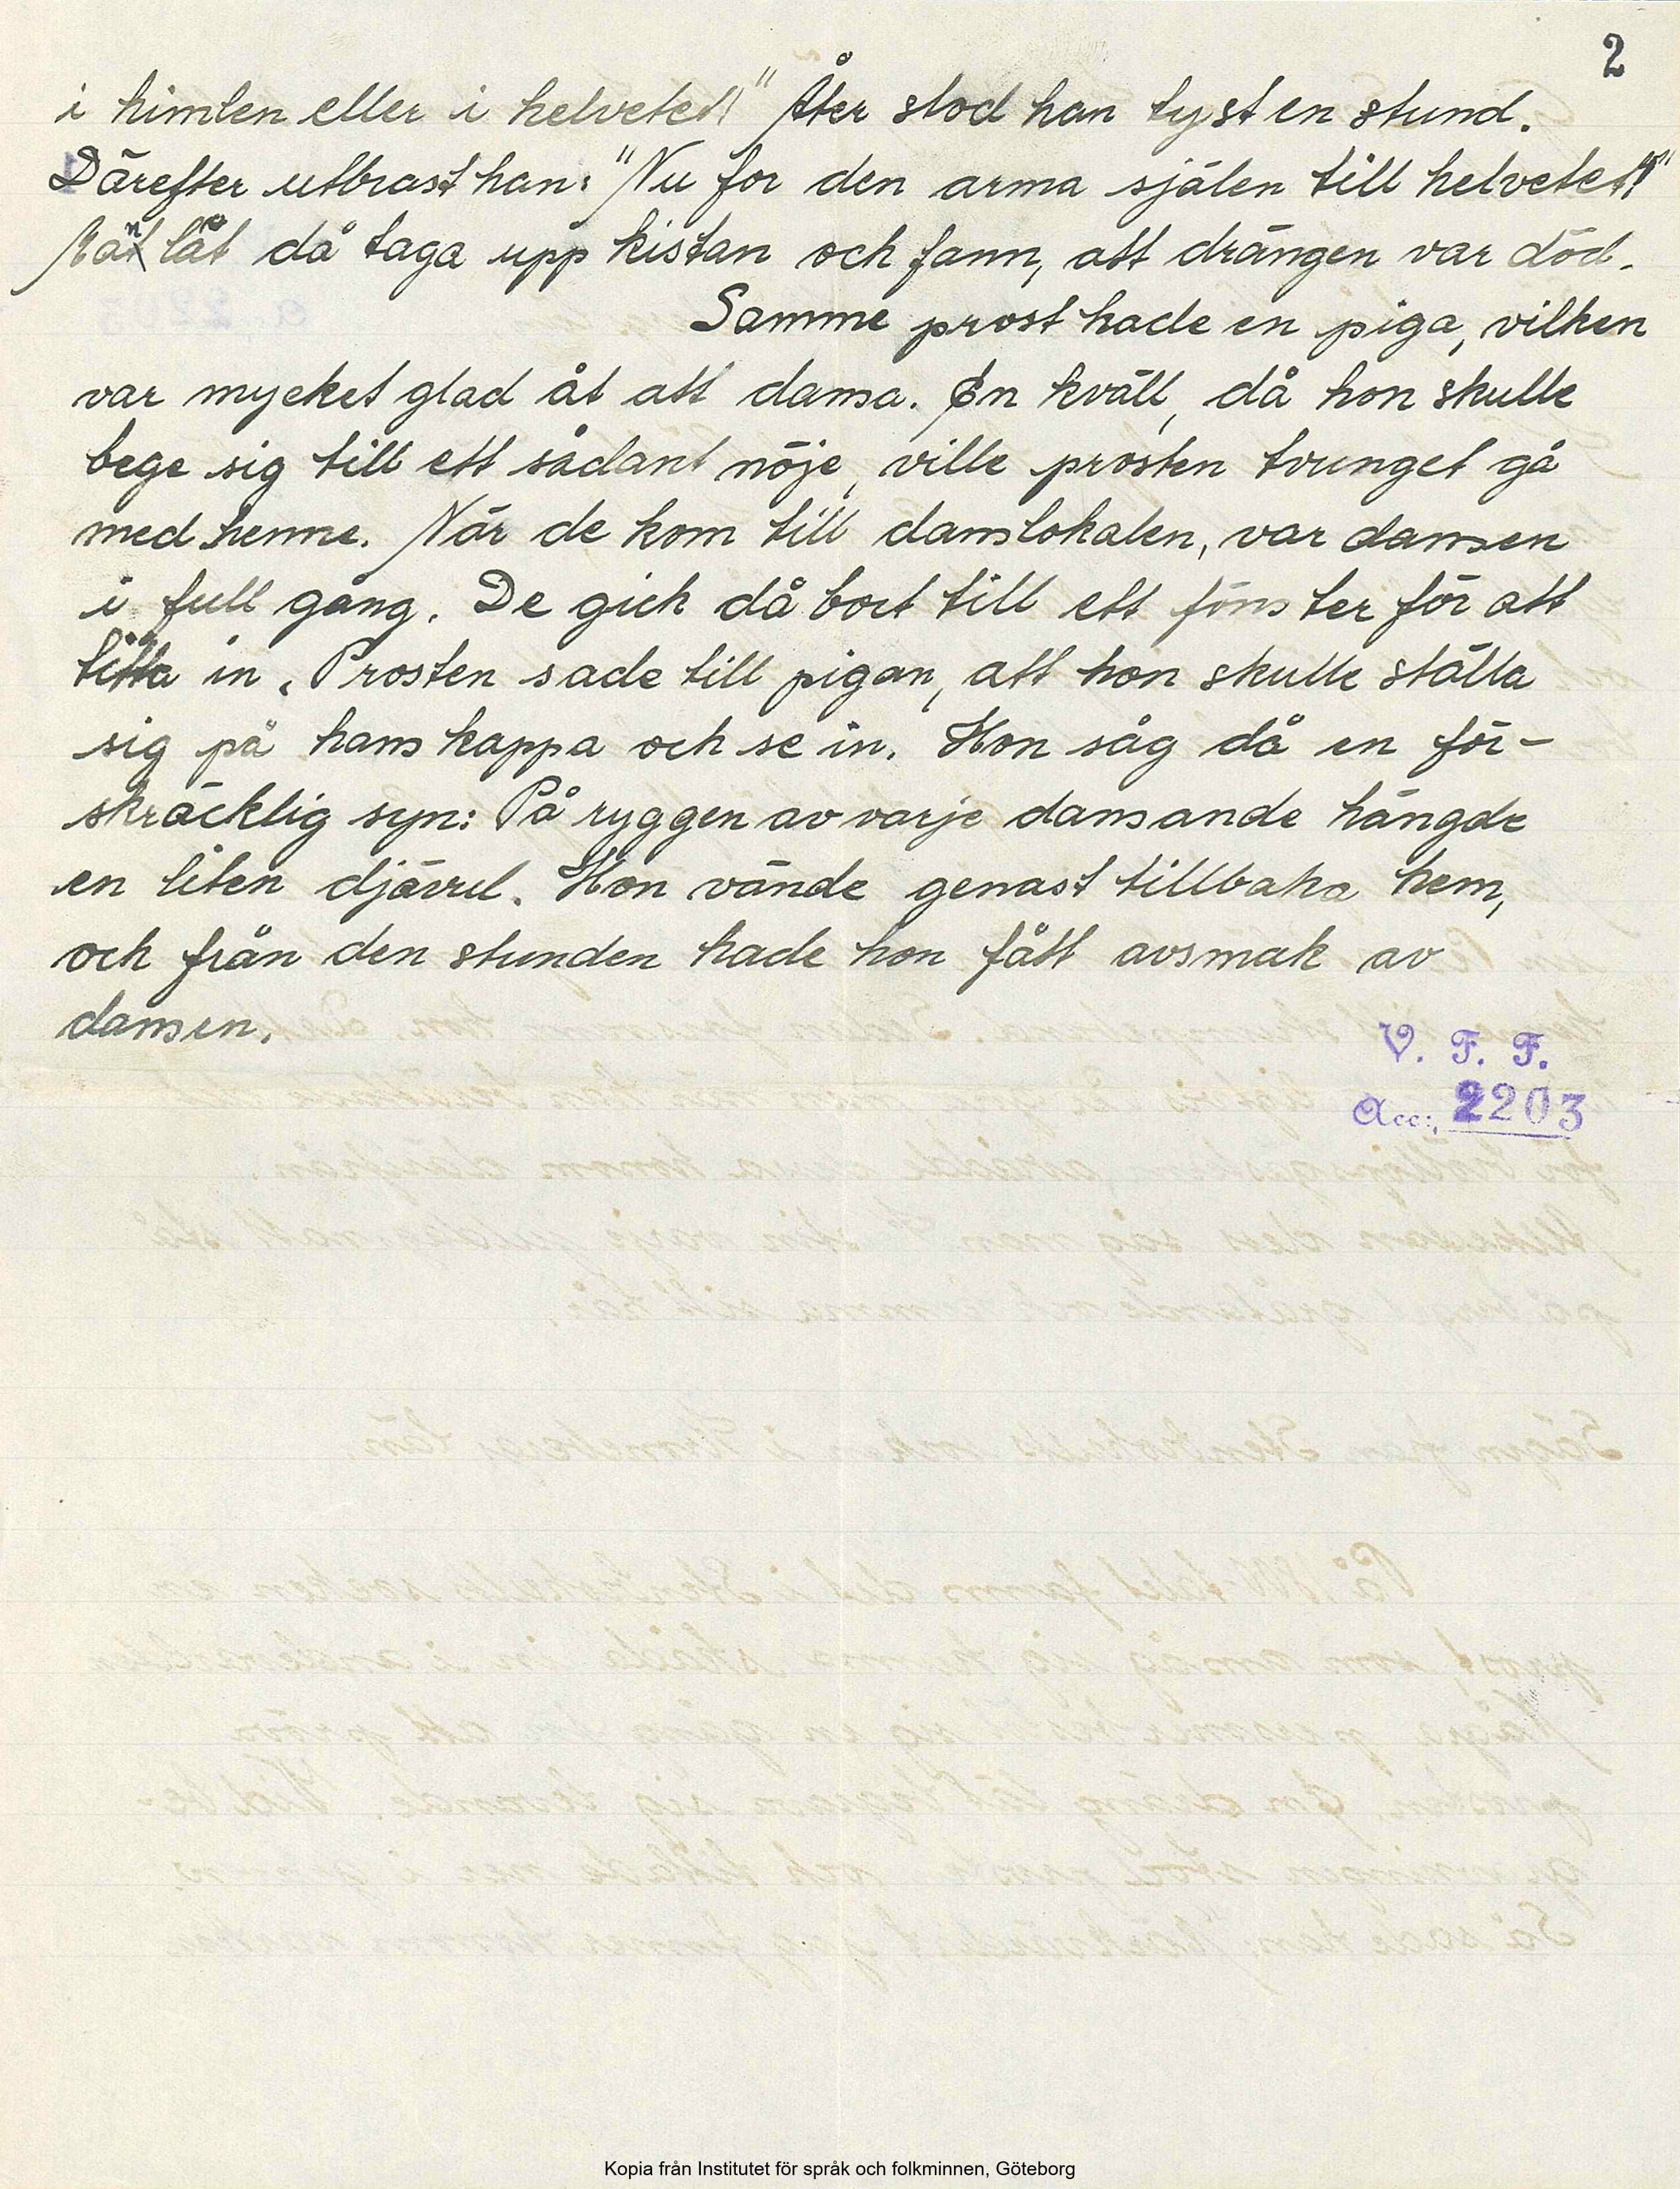 2
i himlen eller i helvetet!" Åter stod han tyst en stund.
Därefter utbrast han: "Nu for den arma själen till helvetet!"
Man lät då taga upp kistan och fann, att drängen var död.
Samme prost hade en piga, vilken
var mycket glad åt att dansa. En kväll, då hon skulle
bege sig till ett sådant nöje, ville prosten tvunget gå
med henne. När de kom till danslokalen, var dansen
i full gång. De gick då bort till ett fönster för att
titta in. Prosten sade till pigan, att hon skulle ställa
sig på hans kappa och se in. Hon såg då en för-
skräcklig syn: På ryggen av varje dansande hängde
en liten djävul. Hon vände genast tillbaka hem,
och från den stunden hade hon fått avsmak av
dansen.
V. F. F.
Acc:, 2203
Kopia från Institutet för språk och folkminnen, Göteborg